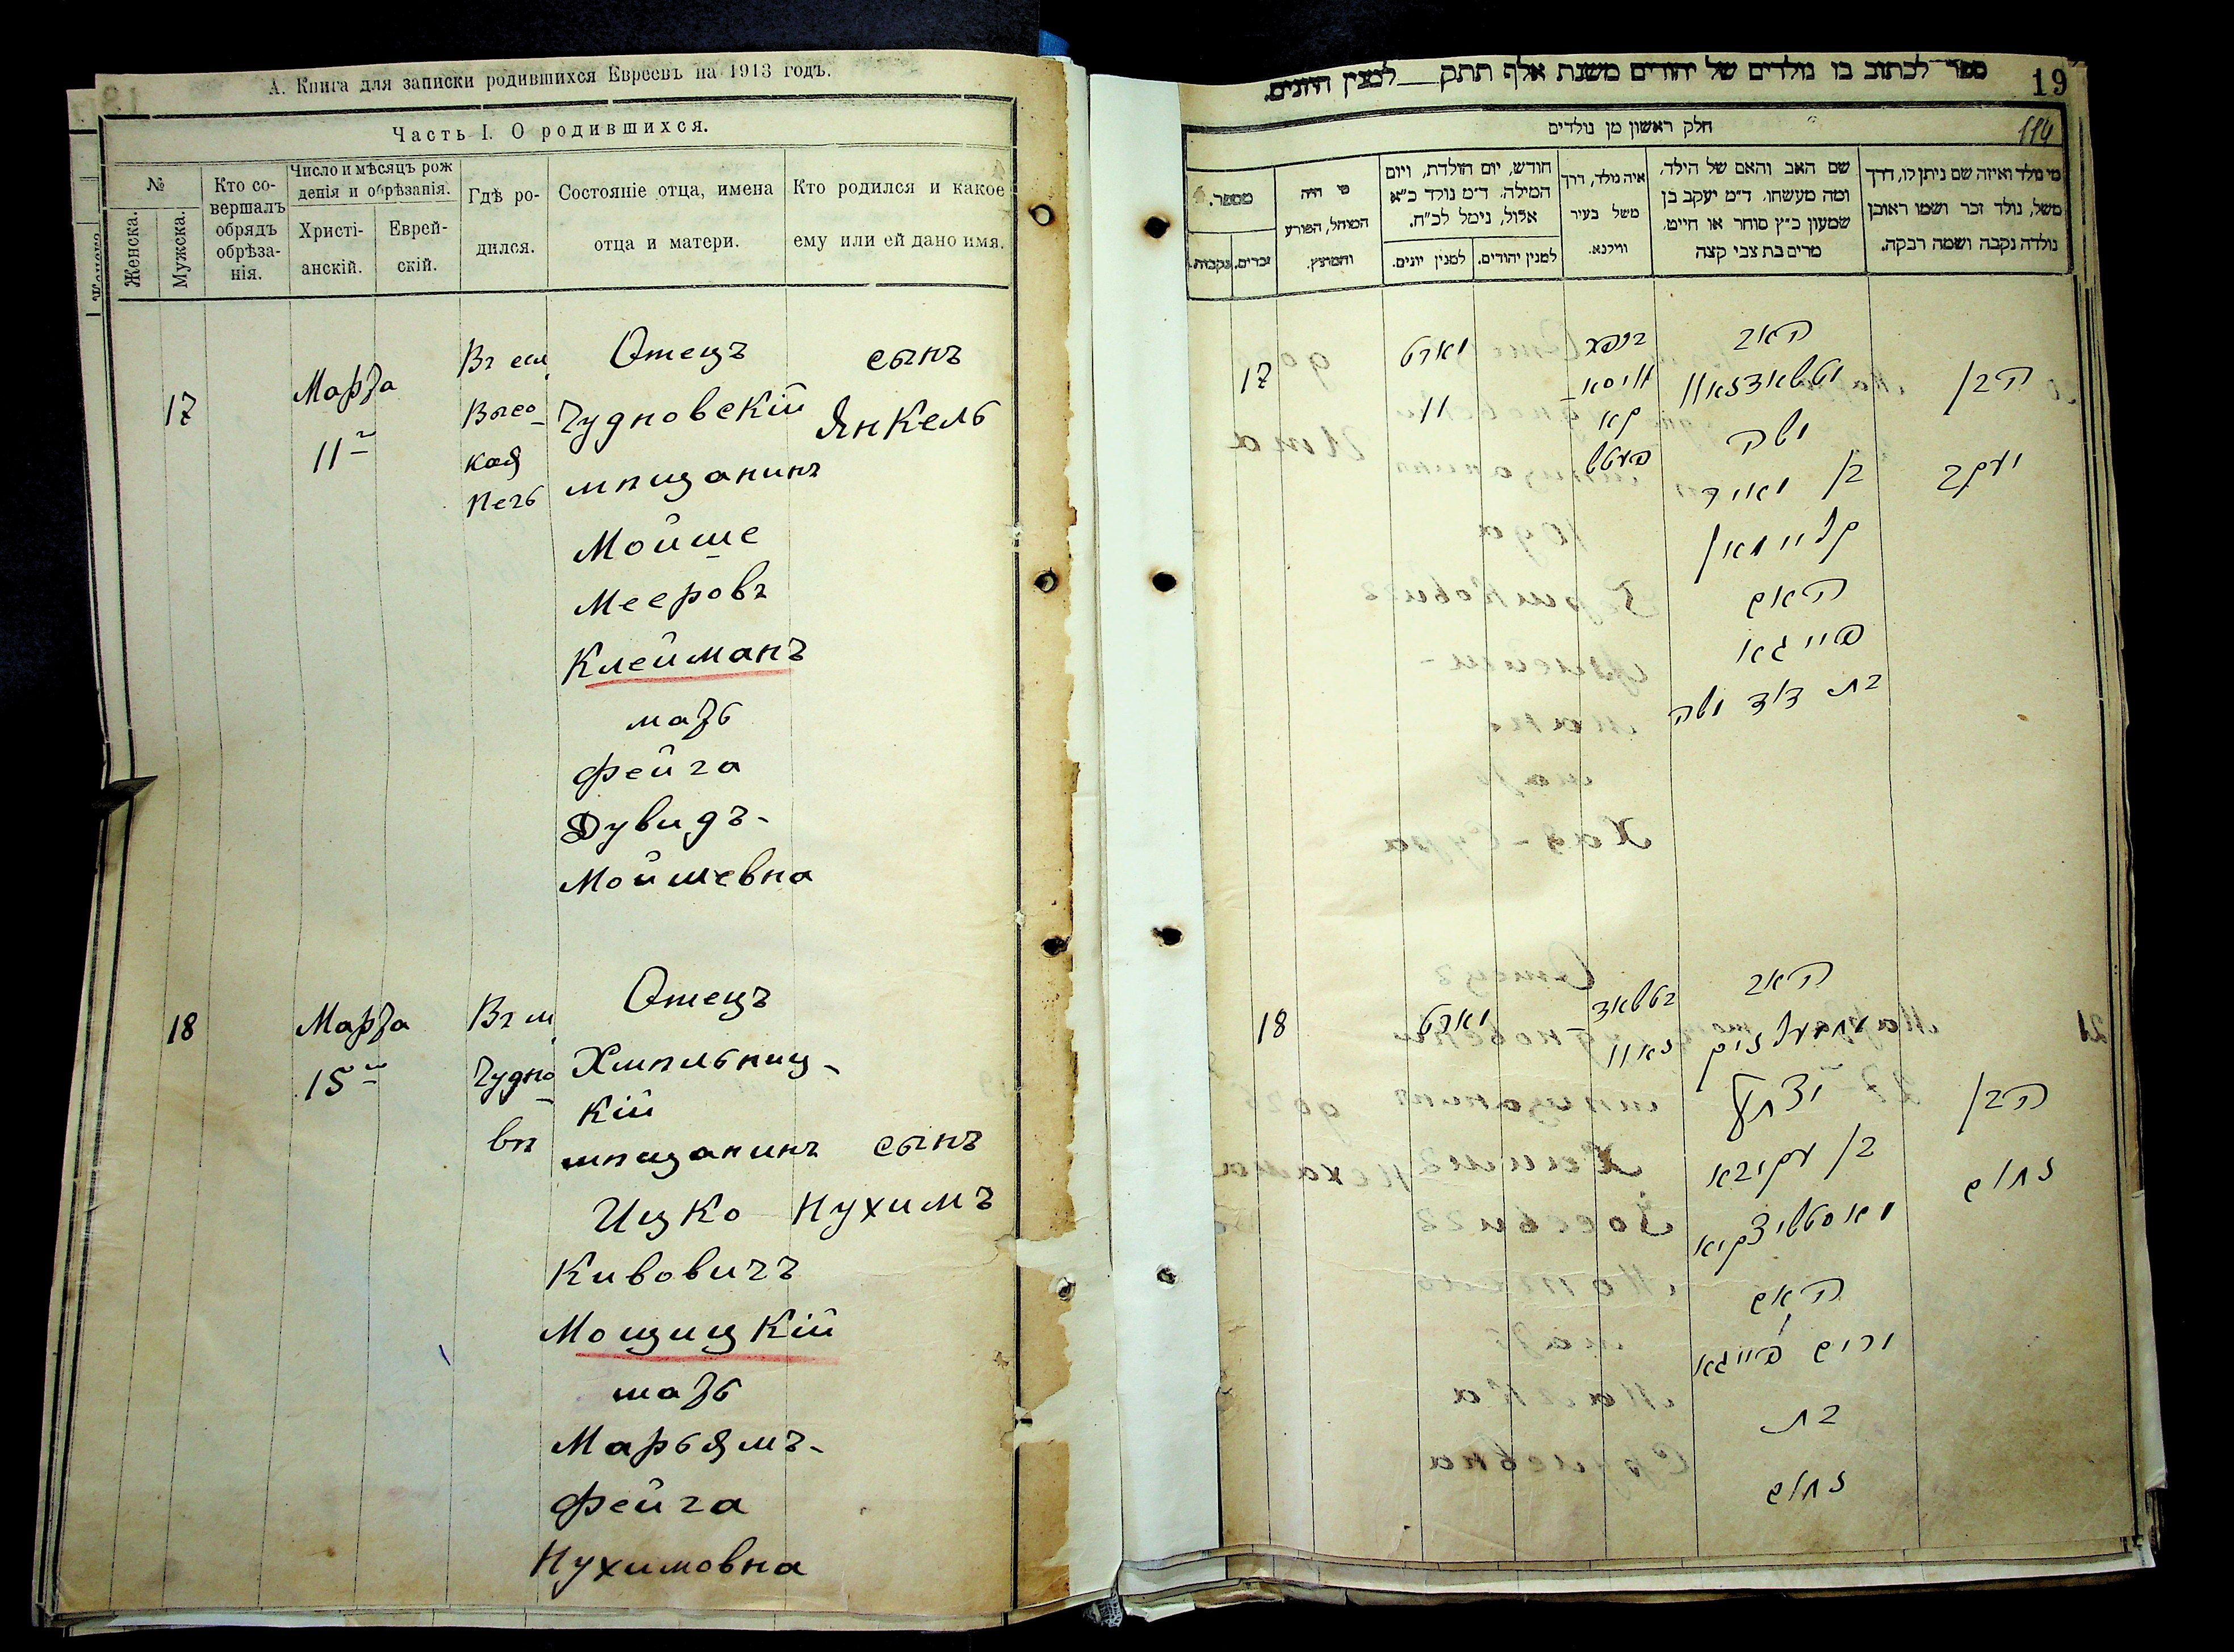 А. Книга для записки родившихся Евреевъ на 1913 годъ.
Часть I. О родившихся.
№
Женска.
Мужска.
Кто со-
вершалъ
обрядъ
обрѣза-
нія.
Число и мѣсяцъ рож
денія и обрѣзанія.
Христі-
анскій.
Еврей-
скій.
Гдѣ ро-
дился.
Состояніе отца, имена
отца и матери.
Кто родился и какое
ему или ей дано имя.
17
Марта
11
Въ сел
Высо-
кая
Печь
Отецъ
Чудновскій
мѣщанинъ
Мойше
Мееровъ
Клейманъ
мать
Фейга
Дувидъ-
Мойшевна
сынъ
Янкель
18
Марта
15
Въ м
Чудно-
вѣ
Отецъ
Хмѣльниц-
кій
мѣщанинъ
Ицко
Кивовичъ
Мощицкій
мать
Марьямъ-
Фейга
Нухимовна
сынъ
Нухимъ
ספר לכתוב בו נולדים של יהודים משנת אלף תתק לטנין היונים.
19
114
חלק ראשון מן נולדים
מי נולד ואיזה שם ניתן לו, דרך
משל, נולד זכר ושמו ראובן
נולדה נקבה ושמה רבקה.
שם האב והאם של הילד,
ומה מעשהו, ד״מ יעקב בן
שמעון כ״ץ סוחר או חייט,
מרים בת צבי קצה
איה נולד, דרך
משל בעיר
ווילנא.
חודש, יום הולדת, ויום
המילה, ד״מ נולד כ״א
אלול, נימל לכ״ח.
למנין יהודים.
למנין יונים.
מי היה
המוהל, הפורע
והמוצץ.
מספר.
זכרים.
נקבות.
17
מארט
11
האב
משה
בן מאיר
קליימאן
האם
פייגא
בת דוד משה
הבן
יעקב
18
מארט
האב
יצחק
בן עקיבא
האם
מרים פייגא
בת
נחום
הבן
נחום